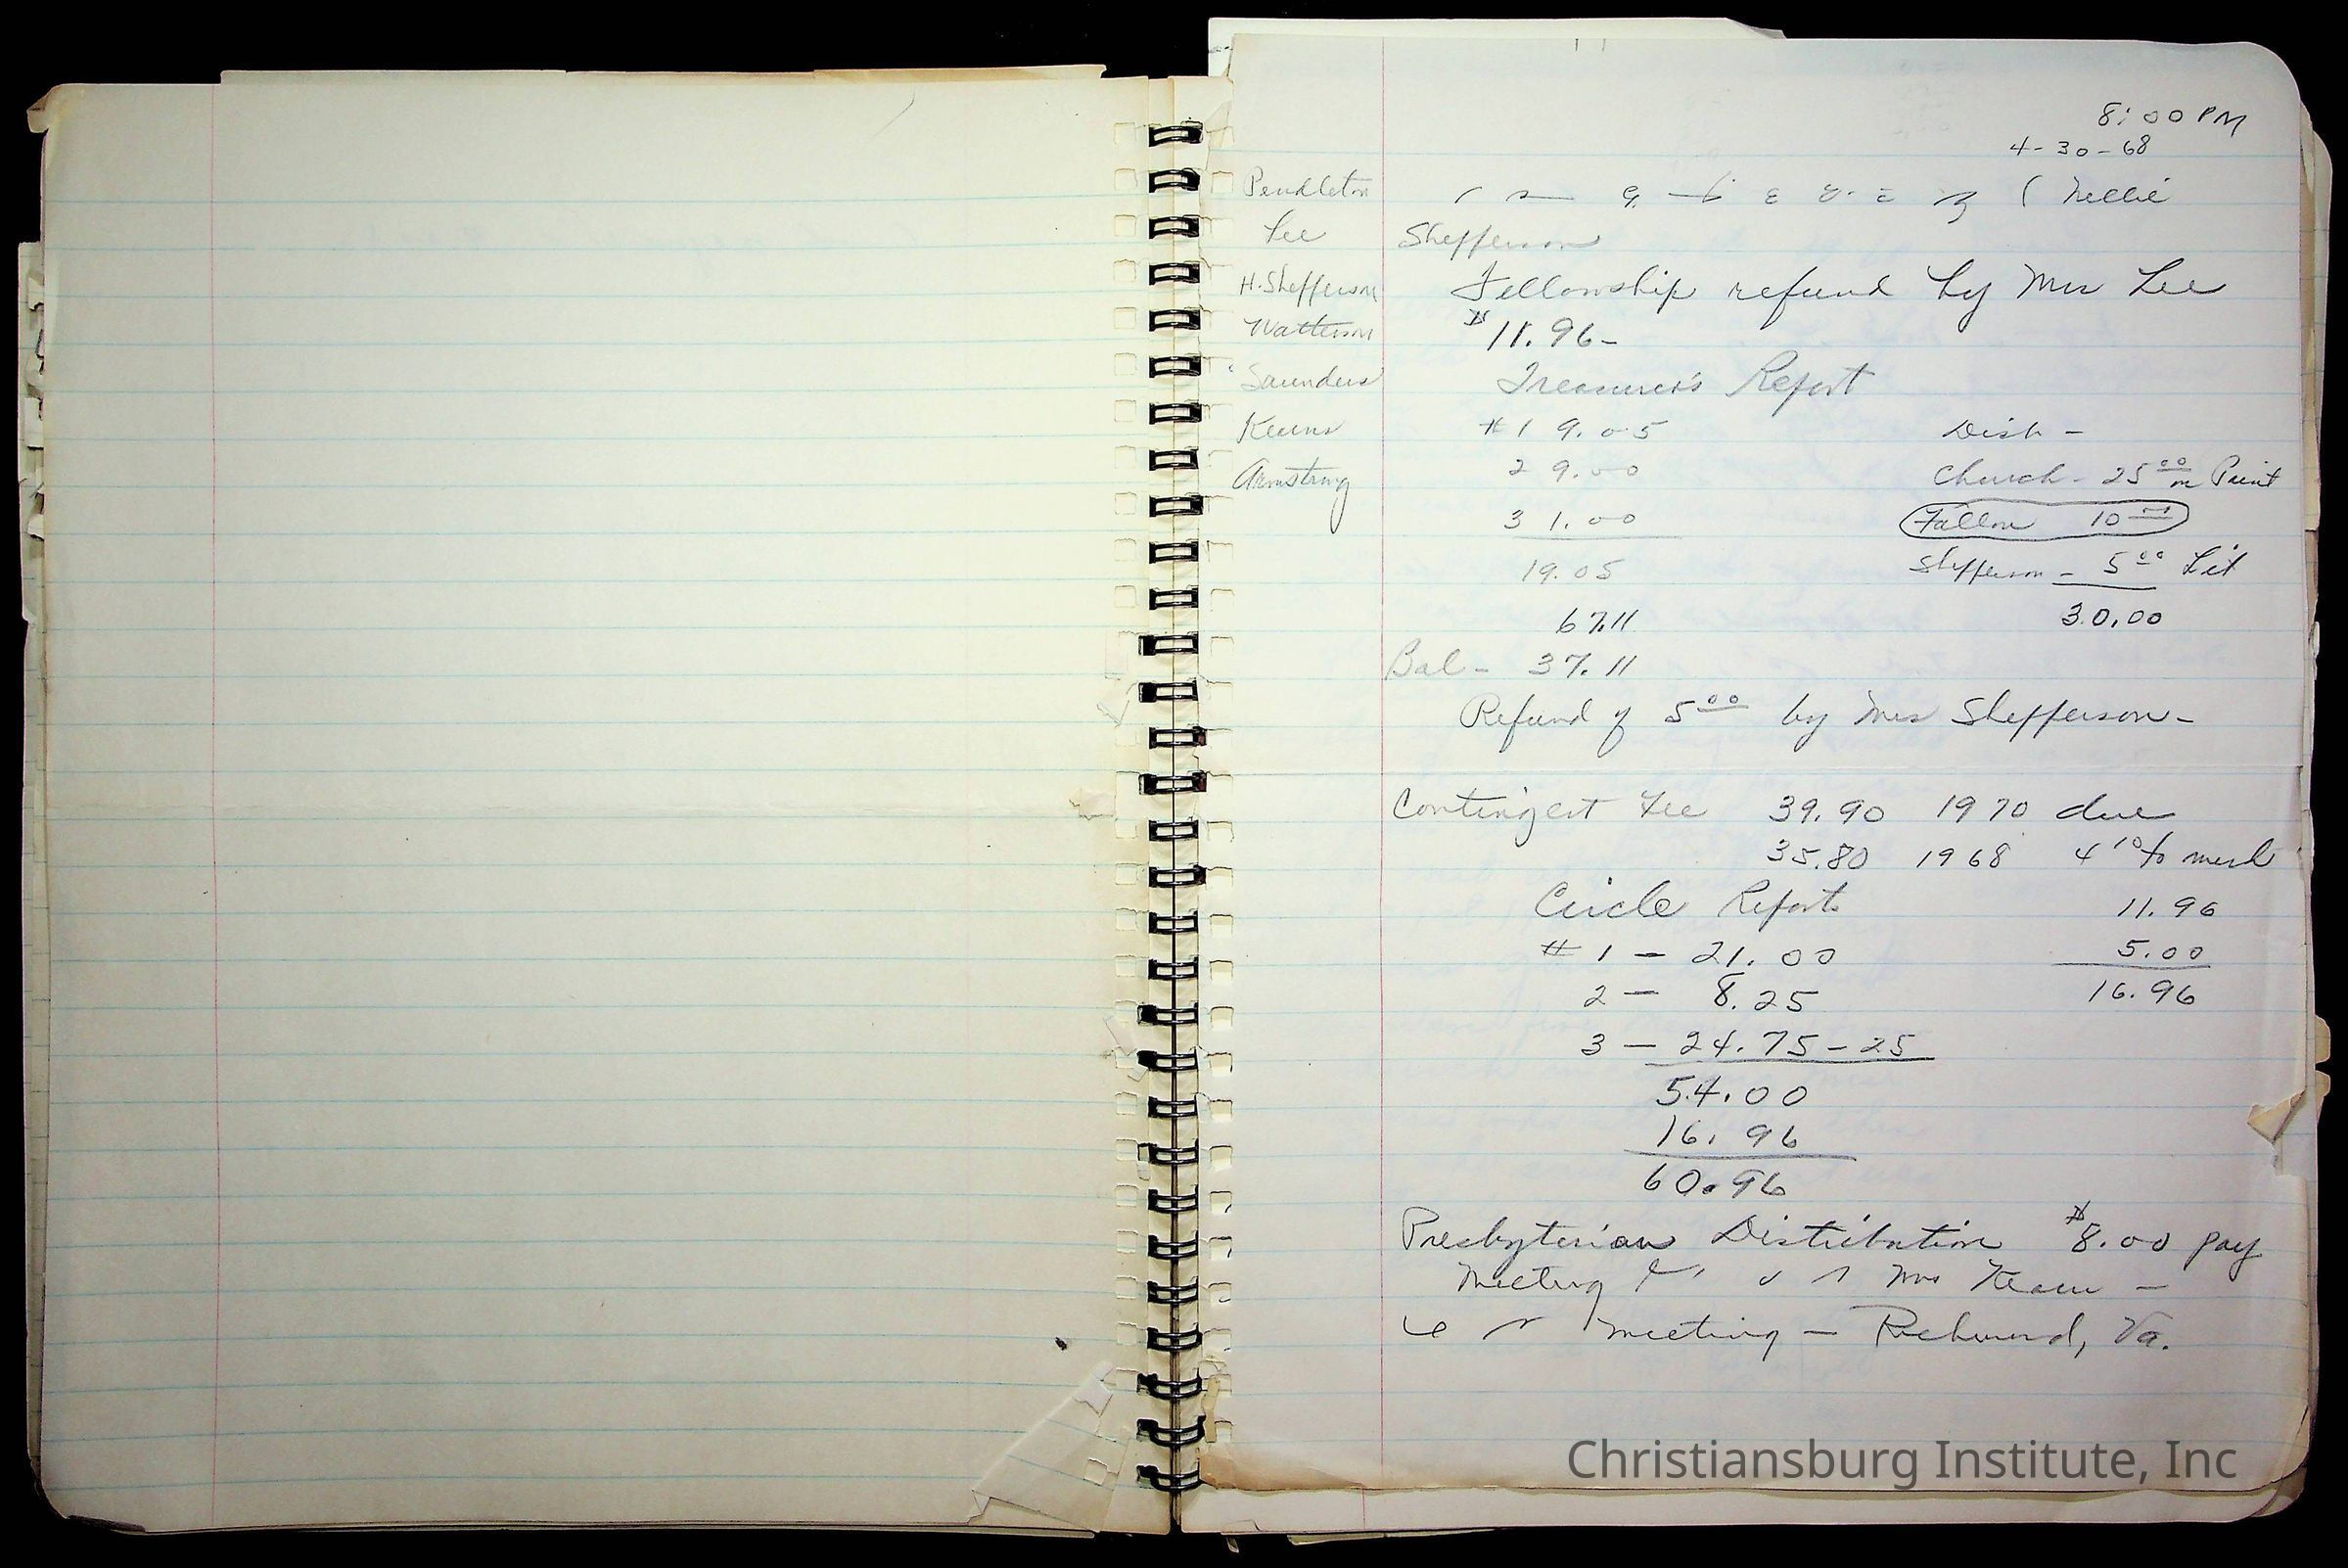 8:00 PM
4-30-68
Pendleton
Lee
H. Shefferson
Watterson
Saunders
Kearns
Armstrong
( Nellie
Shefferson
Fellowship refund by Mrs Lee
$11.96-
Treasurer's Report
#1 9.05
2 9.00
3 1.00
19.05
67.11
Bal- 37.11
Disb -
Church - 25.00 on Paint
Fallon 10.00
Shefferson - 5.00 Lit
30.00
Refund of 5.00 by Mrs Shefferson-
Contingent Fee 39.90 1970 due
35.80 1968 4.10 to
Circle Reports
#1 - 21.00
2 - 8.25
3 - 24.75 - 25
54.00
16.96
60.96
11.96
5.00
16.96
Presbyterian Distribution $8.00 pay
Meeting Mrs Kearn -
meeting - Richmond, Va.
Christiansburg Institute, Inc